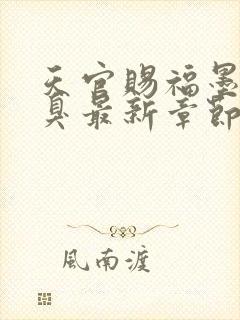 天官賜福墨
臭最新章節
風南渡